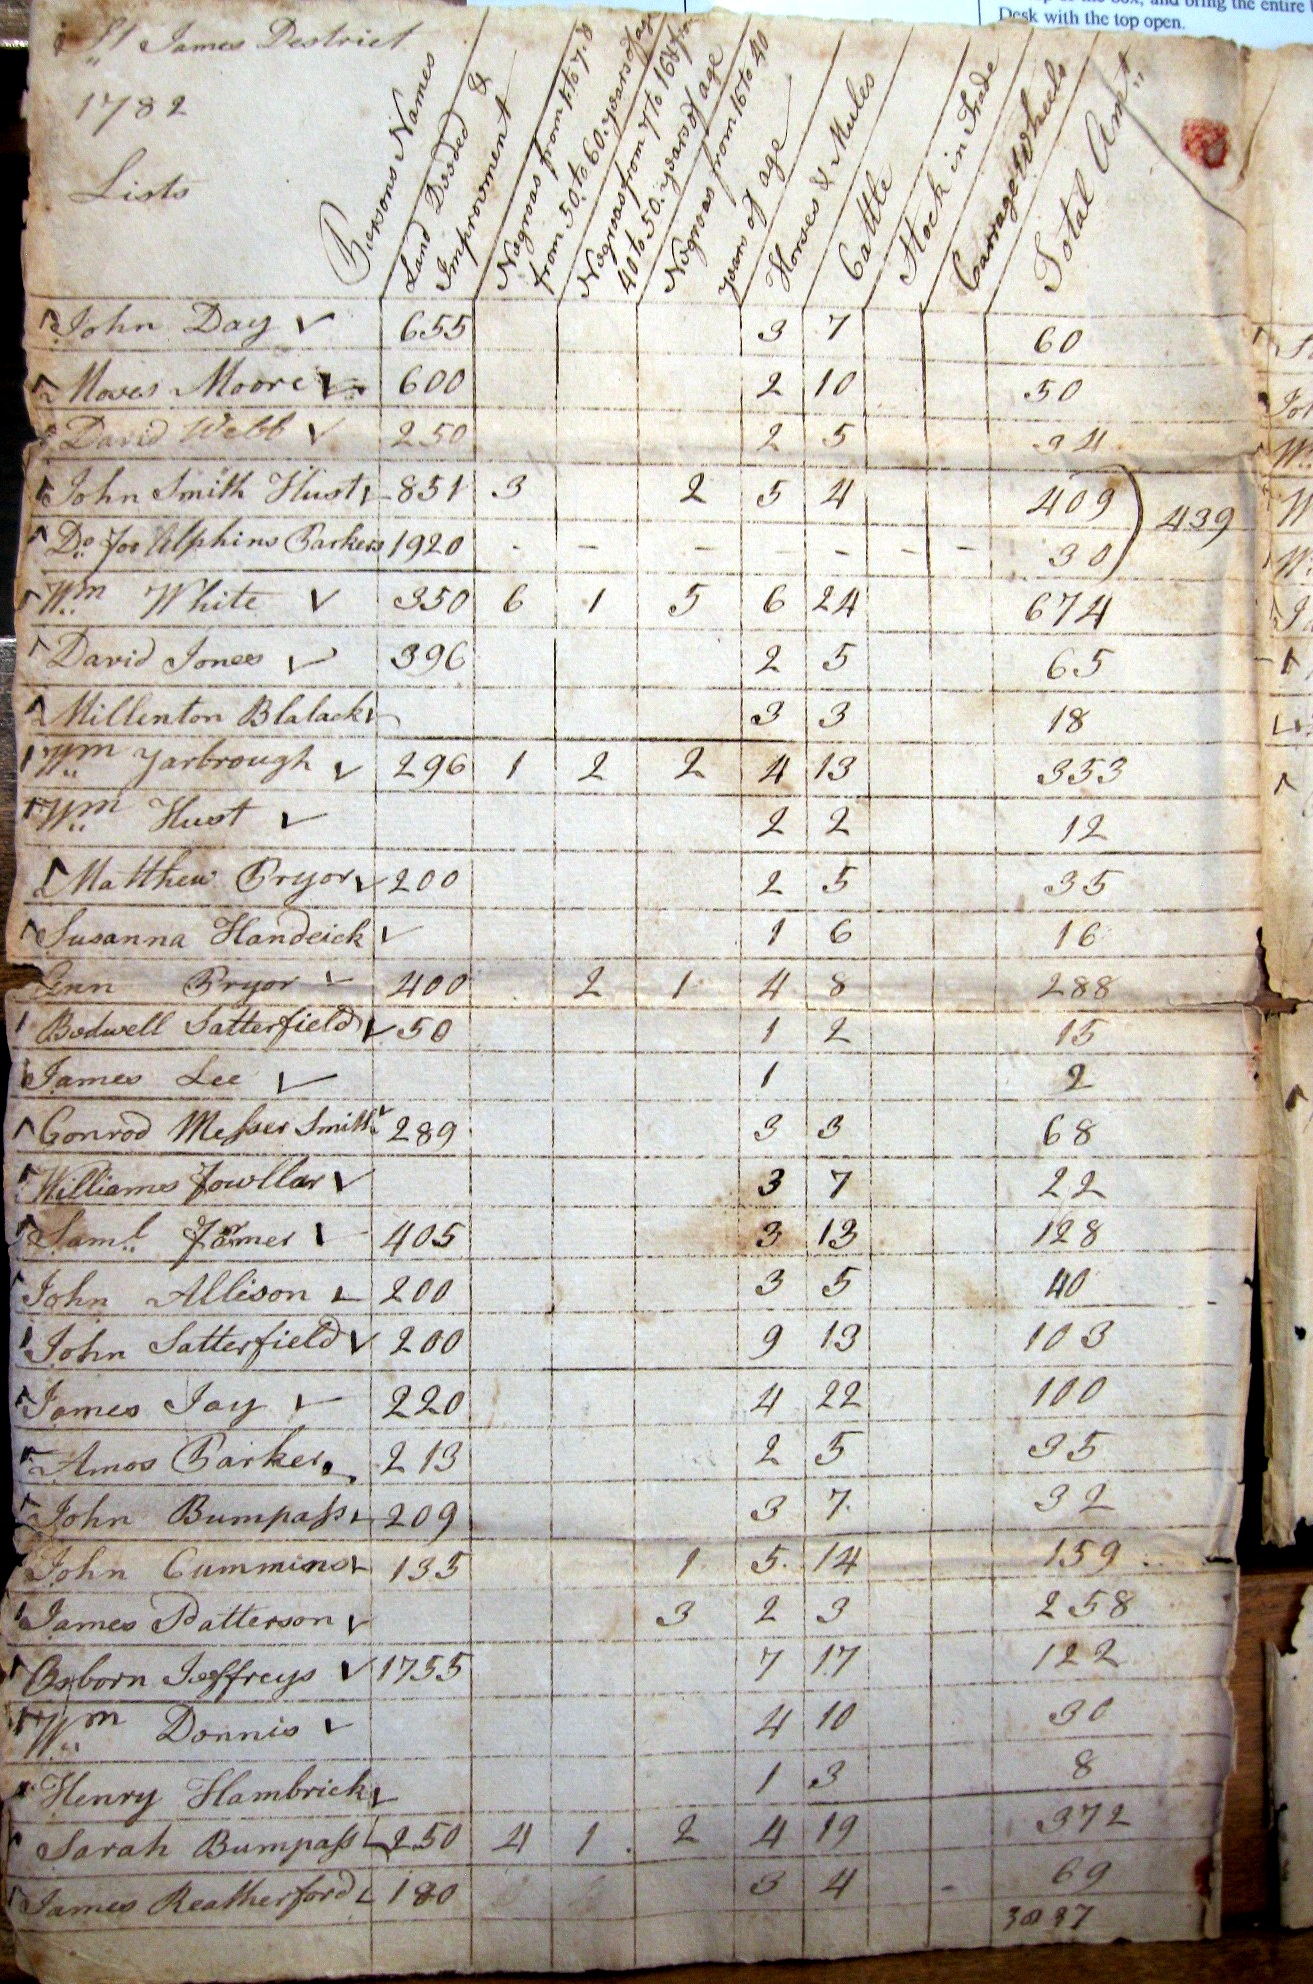 top of the box, and bring the entire
Desk with the top open.
St James Destrict
1782
Lists
Persons Names
Land Deeded &
Improvement
Negroas from 1 to 7 &
from 50 to 60 years of age
Negroas from 7 to 16 & from
40 to 50 years of age
Negroas from 16 to 40
years of age
Horses & Mules
Cattle
Stock in Trade
Carriage Wheels
Total Amt
John Day 655 3 7 60
Moses Moore 600 2 10 50
David Webb 250 2 5 34
John Smith Hust 851 3 2 5 4 409
439
Do for Alphins Parkers 1920 - - - - - - - 30
Wm White 350 6 1 5 6 24 674
David Jones 396 2 5 65
Millenton Blalack 3 3 18
Wm Yarbrough 296 1 2 2 4 13 353
Wm Hust 2 2 12
Matthew Pryor 200 2 5 35
Susanna Handeick 1 6 16
Pryor 400 2 1 4 8 288
Bedwell Satterfield 50 1 2 15
James Lee 1 2
Conrod Messer Smith 289 3 3 68
Williams Fowllar 3 7 22
Saml Farmer 405 3 13 128
John Allison 200 3 5 40
John Satterfield 200 9 13 103
James Jay 220 4 22 100
Amos Parker 213 2 5 35
John Bumpass 209 3 7 32
John Cummins 135 1 5 14 159
James Patterson 3 2 3 258
Osborn Jeffreys 1755 7 17 122
Wm Donnis 4 10 30
Henry Hambrick 1 3 8
Sarah Bumpass 250 4 1 2 4 19 372
James Reatherford 180 3 4 69